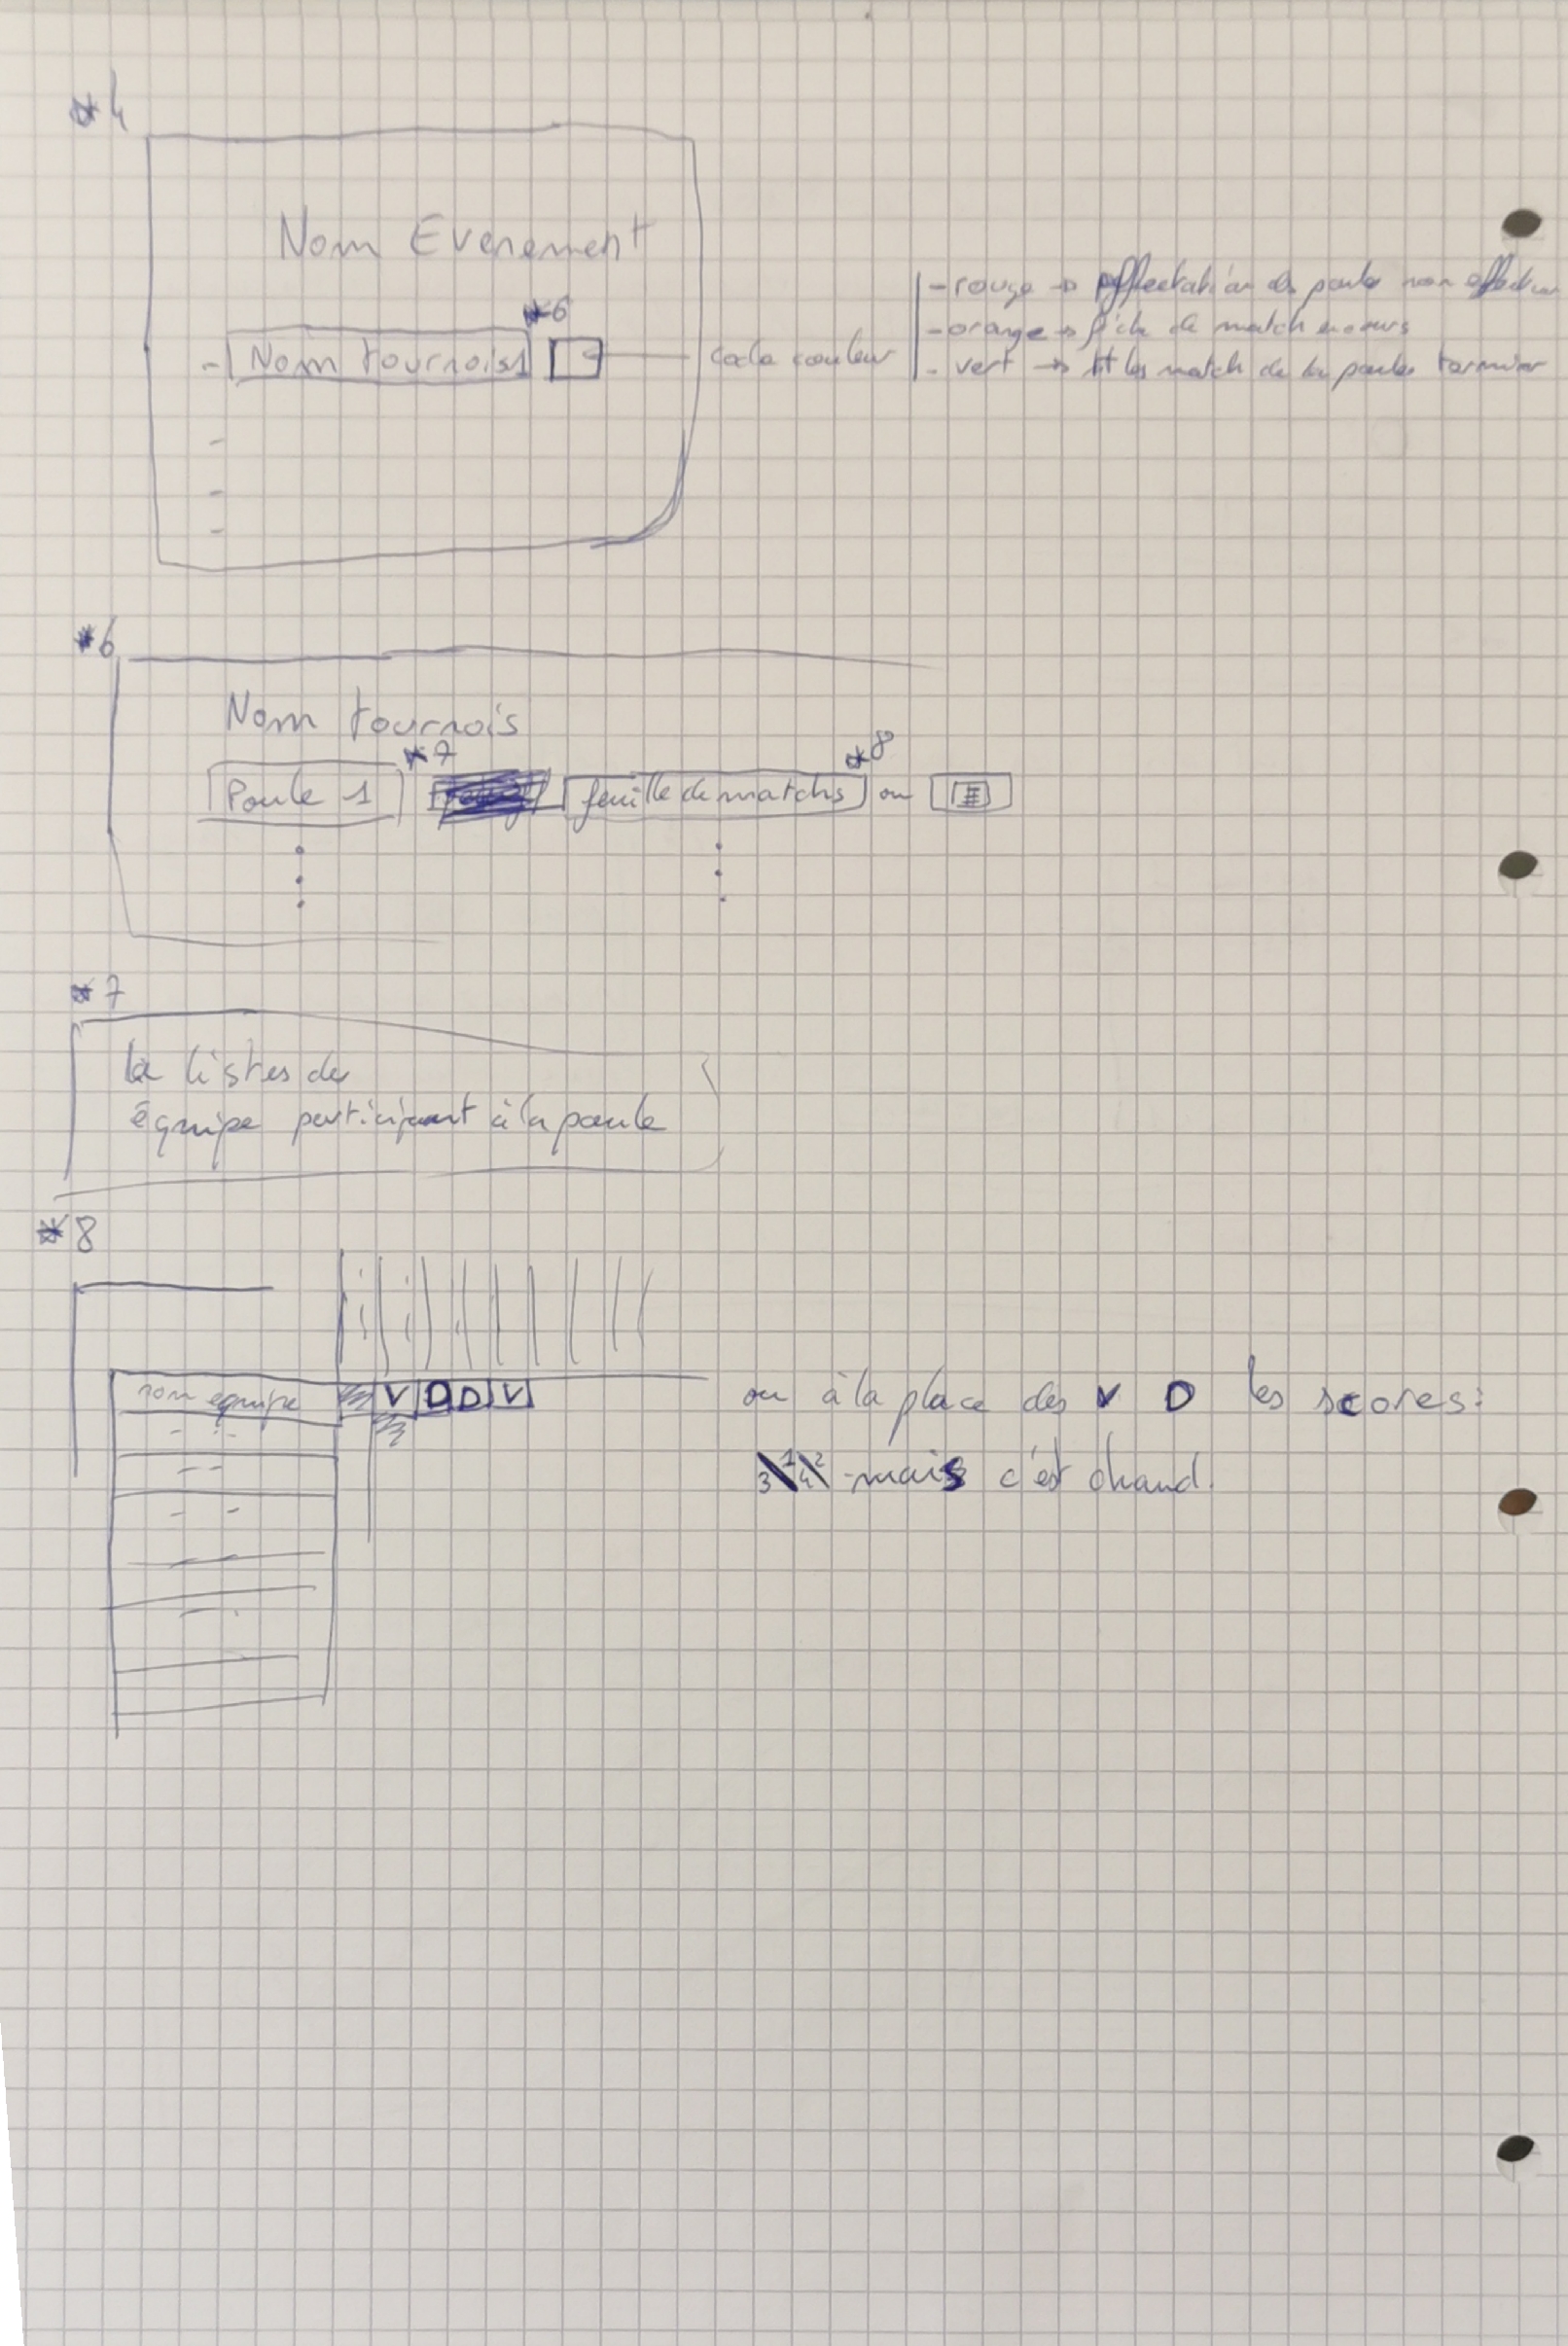 *4
Nom Evenement
*6
- Nom tournois1
code couleur
- rouge → affectation des poules non effectuer
- orange → fiche de match en cours
- vert → tt les match de la poules terminer
*6
Nom tournois
*7
*8
Poule 1
feuille de matchs ou
*7
la listes des
équipe participant à la poule
*8
nom equipe V D D V
ou à la place des V D les scores:
3\1 4\2 -mais c'est chaud.